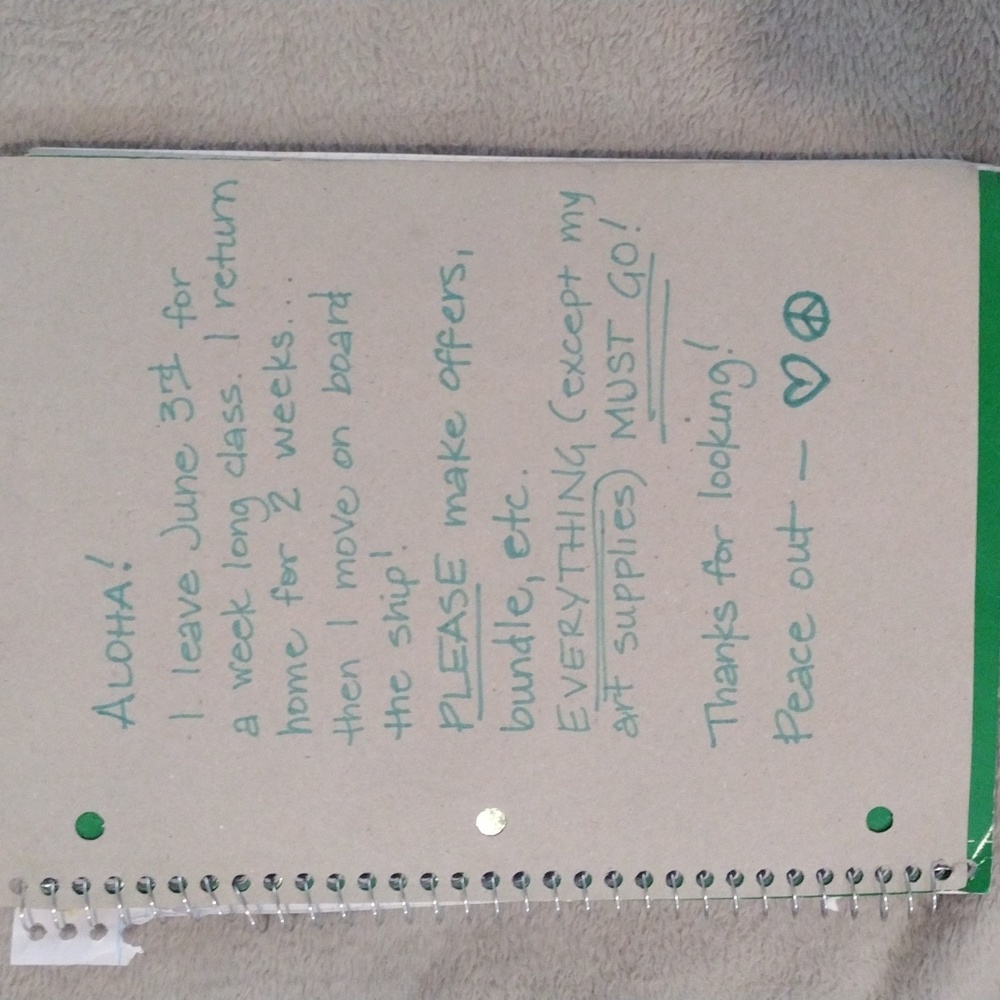 ALOHA!
I leave June 3rd for
a week long class. I return
home for 2 weeks...
then I move on board
the ship!
PLEASE make offers,
bundle, etc.
EVERYTHING (except my
art supplies) MUST GO!
Thanks for looking!
Peace out —